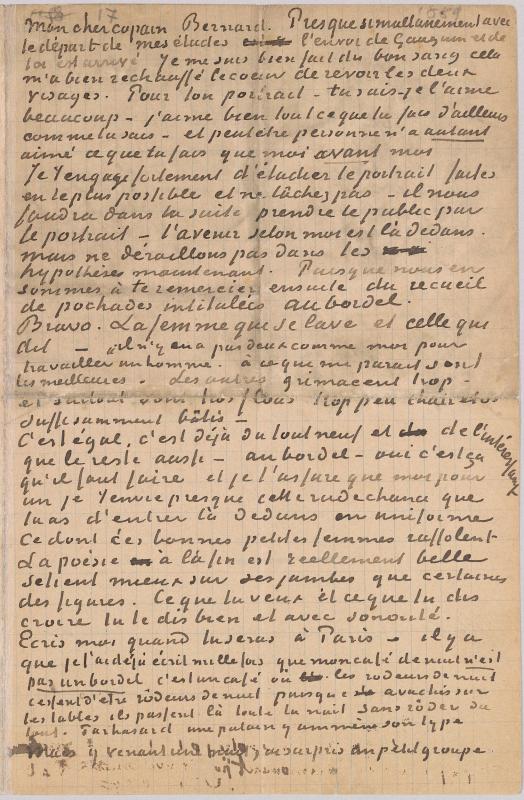 17
Mon cher copain Bernard. Presque simultanément avec
le départ de mes études l'envoi de Gauguin et de
toi est arrivé Je me suis bien fait du bon sang cela
m'a bien rechauffé le coeur de revoir les deux
visages. Pour ton portrait – tu sais – je l'aime
beaucoup – j'aime bien tout ce que tu fais d'ailleurs
comme tu sais – et peut être personne n'a autant
aimé ce que tu fais que moi avant moi
Je t'engage fortement d'étudier le portrait faites
en le plus possible et ne lâchez pas – il nous
faudra dans la suite prendre le public par
le portrait – l'avenir selon moi est là dedans.
mais ne déraillons pas dans les
hypothèses maintenant. Puisque nous en
sommes à te remercier ensuite du recueil
de pochades intitulées au bordel.
Bravo. La femme qui se lave et celle qui
dit – il n'y en a pas deux comme moi pour
travailler un homme. à ce que me parait sont
les meilleures. Les autres grimacent trop –
et surtout sont trop flous trop peu chair et os
suffisamment bâtis –
C'est égal, c'est déjà du tout neuf et de l'intéressant
que le reste aussi – au bordel – oui c'est ça
qu'il faut faire et je t'assure que moi pour
un je t'envie presque cette rude chance que
tu as d'entrer là dedans en uniforme
Ce dont ces bonnes petites femmes raffolent
La poésie à la fin est reellement belle
se tient mieux sur ses jambes que certaines
des figures. Ce que tu veux et ce que tu dis
croire tu le dis bien et avec sonorité.
Ecris moi quand tu seras à Paris – il y a
que je t'ai déjà écrit mille fois que mon café de nuit n'est
pas un bordel c'est un café où les rodeurs de nuit
cessent d'etre rôdeurs de nuit puisque avachis sur
les tables ils passent là toute la nuit sans rôder du
tout. Par hasard une putain y ammène son type
Mais y venant une nuit j'ai surpris un petit groupe